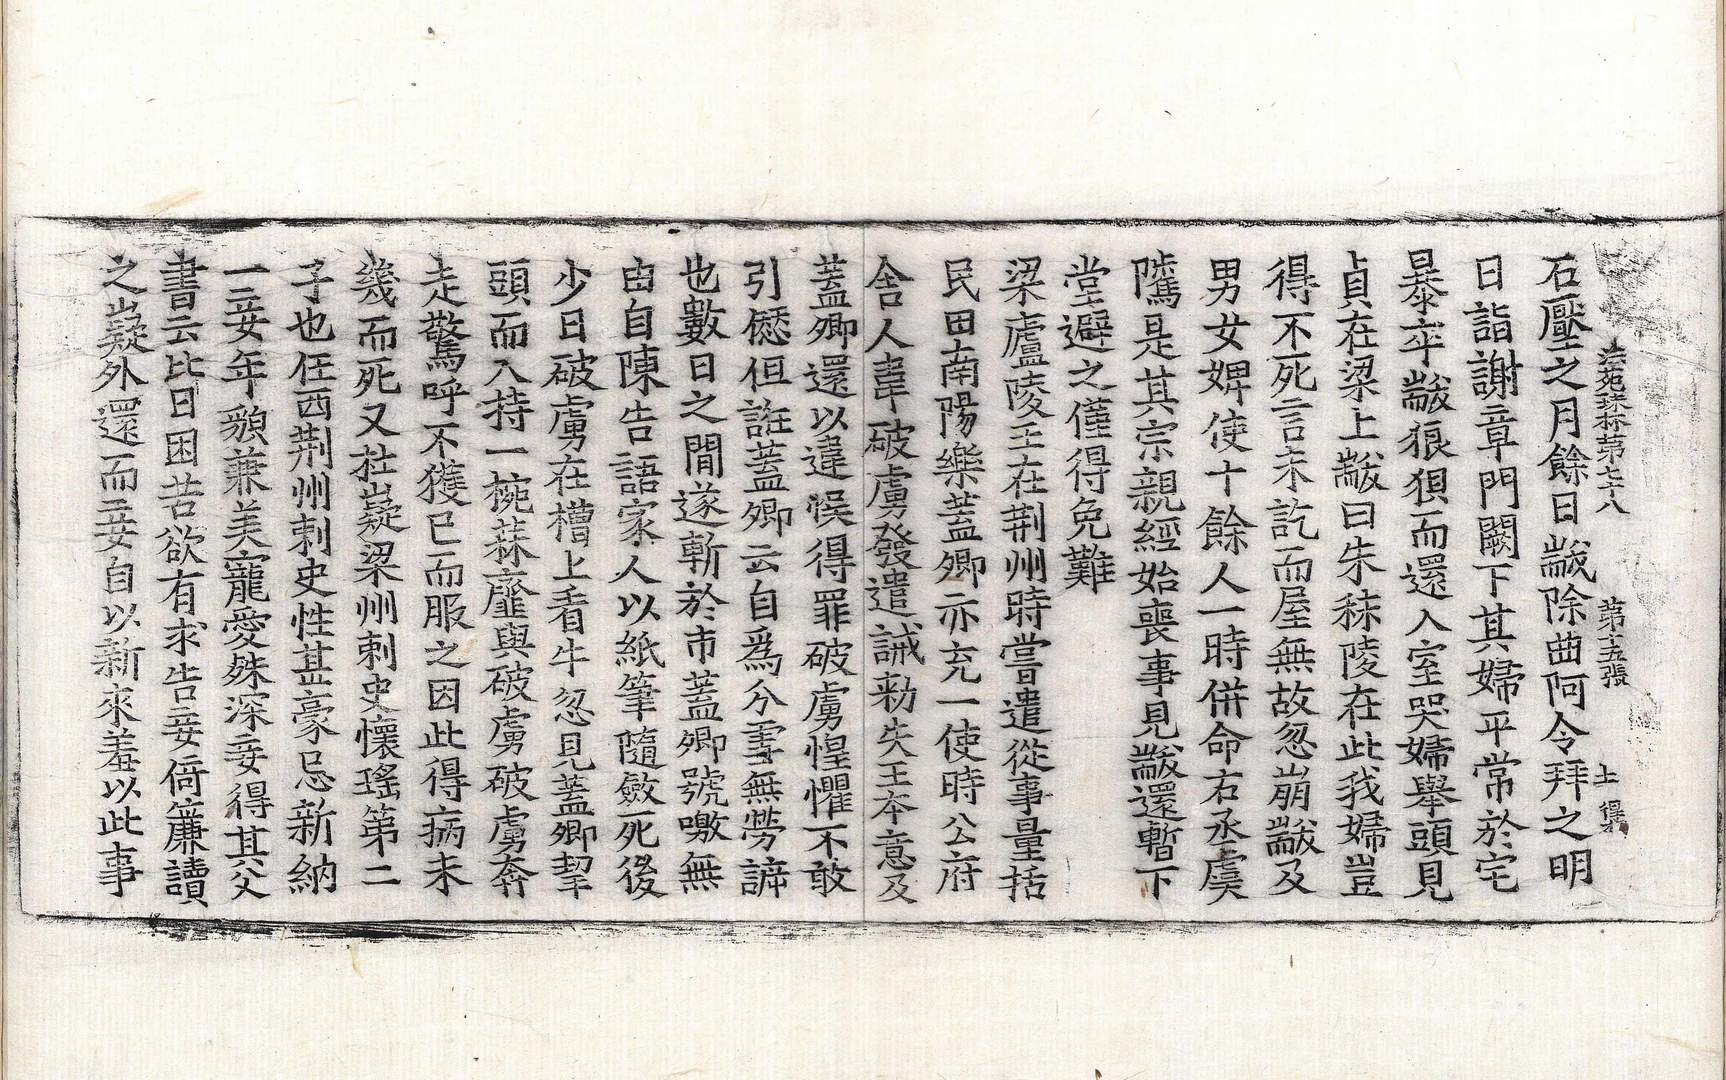 法苑珠林第七十八　第十五張　土　得
石壓之月餘日黻除曲阿令拜之明
日詣謝章門闕下其婦平常於宅
暴卒黻狼狽而還入室哭婦舉頭見
貞在梁上黻曰朱秣陵在此我婦豈
得不死言未訖而屋無故忽崩黻及
男女婢使十餘人一時併命右丞虞
隲是其宗親經始喪事見黻還暫下
堂避之僅得免難
梁廬陵王在荆州時嘗遣從事量括
民田南陽樂蓋卿亦充一使時公府
舍人韋破虜發遣誡勑失王本意及
蓋卿還以違悮得罪破虜惶懼不敢
引愆但誑蓋卿云自爲分雪無勞諦
也數日之間遂斬於市蓋卿號噭無
由自陳告語家人以紙筆隨斂死後
少日破虜在槽上看牛忽見蓋卿挈
頭而入持一椀蒜虀與破虜破虜奔
走驚呼不獲已而服之因此得病未
幾而死又杜嶷梁州刺史懷瑤第二
子也任西荆州刺史性甚豪忌新納
一妾年㒵兼美寵愛殊深妾得其父
書云比日困苦欲有求告妾倚簾讀
之嶷外還而妾自以新來羞以此事